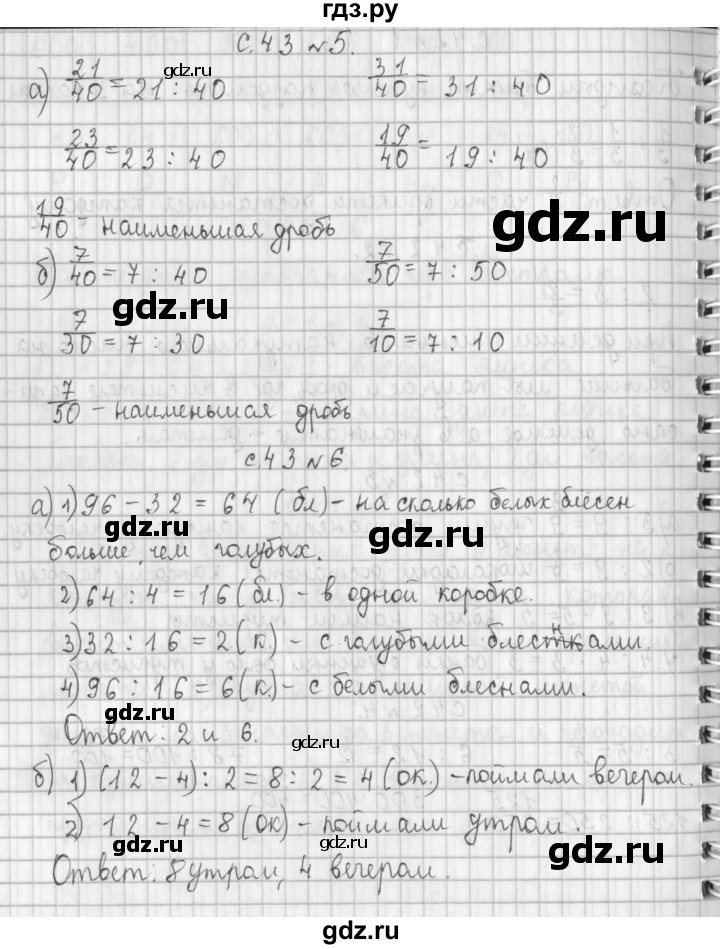 гдз.ру
с.43 №5.
а) 21/40 = 21 : 40   31/40 = 31 : 40
23/40 = 23 : 40   19/40 = 19 : 40
19/40 - наименьшая дробь
б) 7/40 = 7 : 40   7/50 = 7 : 50
7/30 = 7 : 30   7/10 = 7 : 10
7/50 - наименьшая дробь
с.43 №6.
а) 1) 96 - 32 = 64 (бл) - на сколько белых блёсен
больше, чем голубых.
2) 64 : 4 = 16 (бл.) - в одной коробке.
3) 32 : 16 = 2 (к.) - с голубыми блеснами.
4) 96 : 16 = 6 (к.) - с белыми блеснами.
Ответ: 2 и 6.
б) 1) (12 - 4) : 2 = 8 : 2 = 4 (ок.) - поймали вечером.
2) 12 - 4 = 8 (ок) - поймали утром.
Ответ: 8 утром, 4 вечером.
gdz.ru
gdz.ru
gdz.ru
gdz.ru
gdz.ru
gdz.ru
gdz.ru
gdz.ru
gdz.ru
gdz.ru
gdz.ru
gdz.ru
gdz.ru
gdz.ru